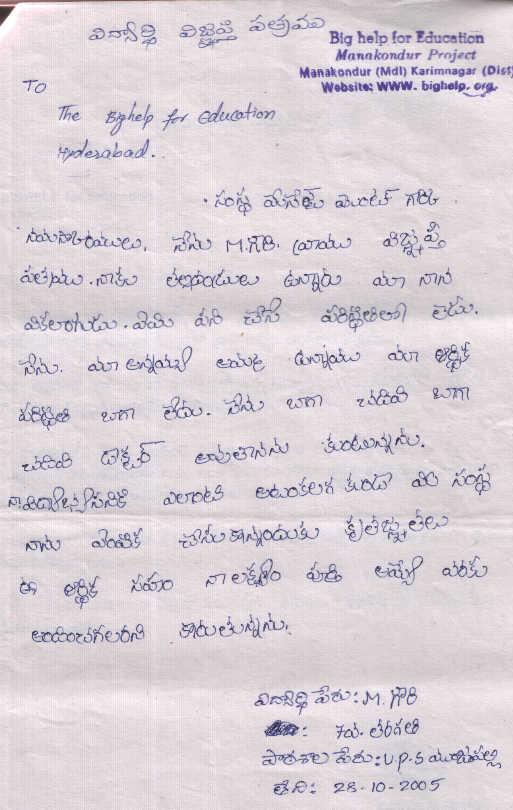 విద్యార్థి విజ్ఞప్తి పత్రము
Big help for Education
Manakondur Project
Manakondur (Mdl) Karimnagar (Dist)
Website: WWW. bighelp. org
TO
The Bighelp for Education
Hyderabad..
. సంస్థ మేనేజ్ మెంట్ గారికి
నమస్కారములు, నేను M.గౌరి. వ్రాయు విజ్ఞప్తి
పత్రము. నాకు తల్లిదండ్రులు ఉన్నారు మా నాన
వికలాంగుడు. ఏమి పని చేసే పరిస్థితిలో లేడు.
నేను. మా అన్నయ్య ఉన్నాము మా ఆర్థిక
పరిస్థితి బాగా లేదు. నేను బాగా చదివి బాగా
చదివి డాక్టర్ అవుతానను కుంటున్నను.
నా విద్యాభ్యాసనికి ఎలాంటి ఆటంకలగ కుండా మీ సంస్థ
నాను ఎంపిక చేసుకొన్నందుకు కృతజ్ఞతలు
ఈ ఆర్థిక సహాం నా లక్ష్యం పూర్తి అయ్యే వరకు
అందించగలరని కోరుతున్నను.
విద్యార్థి పేరు: M. గౌరి
: 7వ. తరగతి
పాఠశాల పేరు: U.P.S ముంజపల్లి
తేది: 28-10-2005